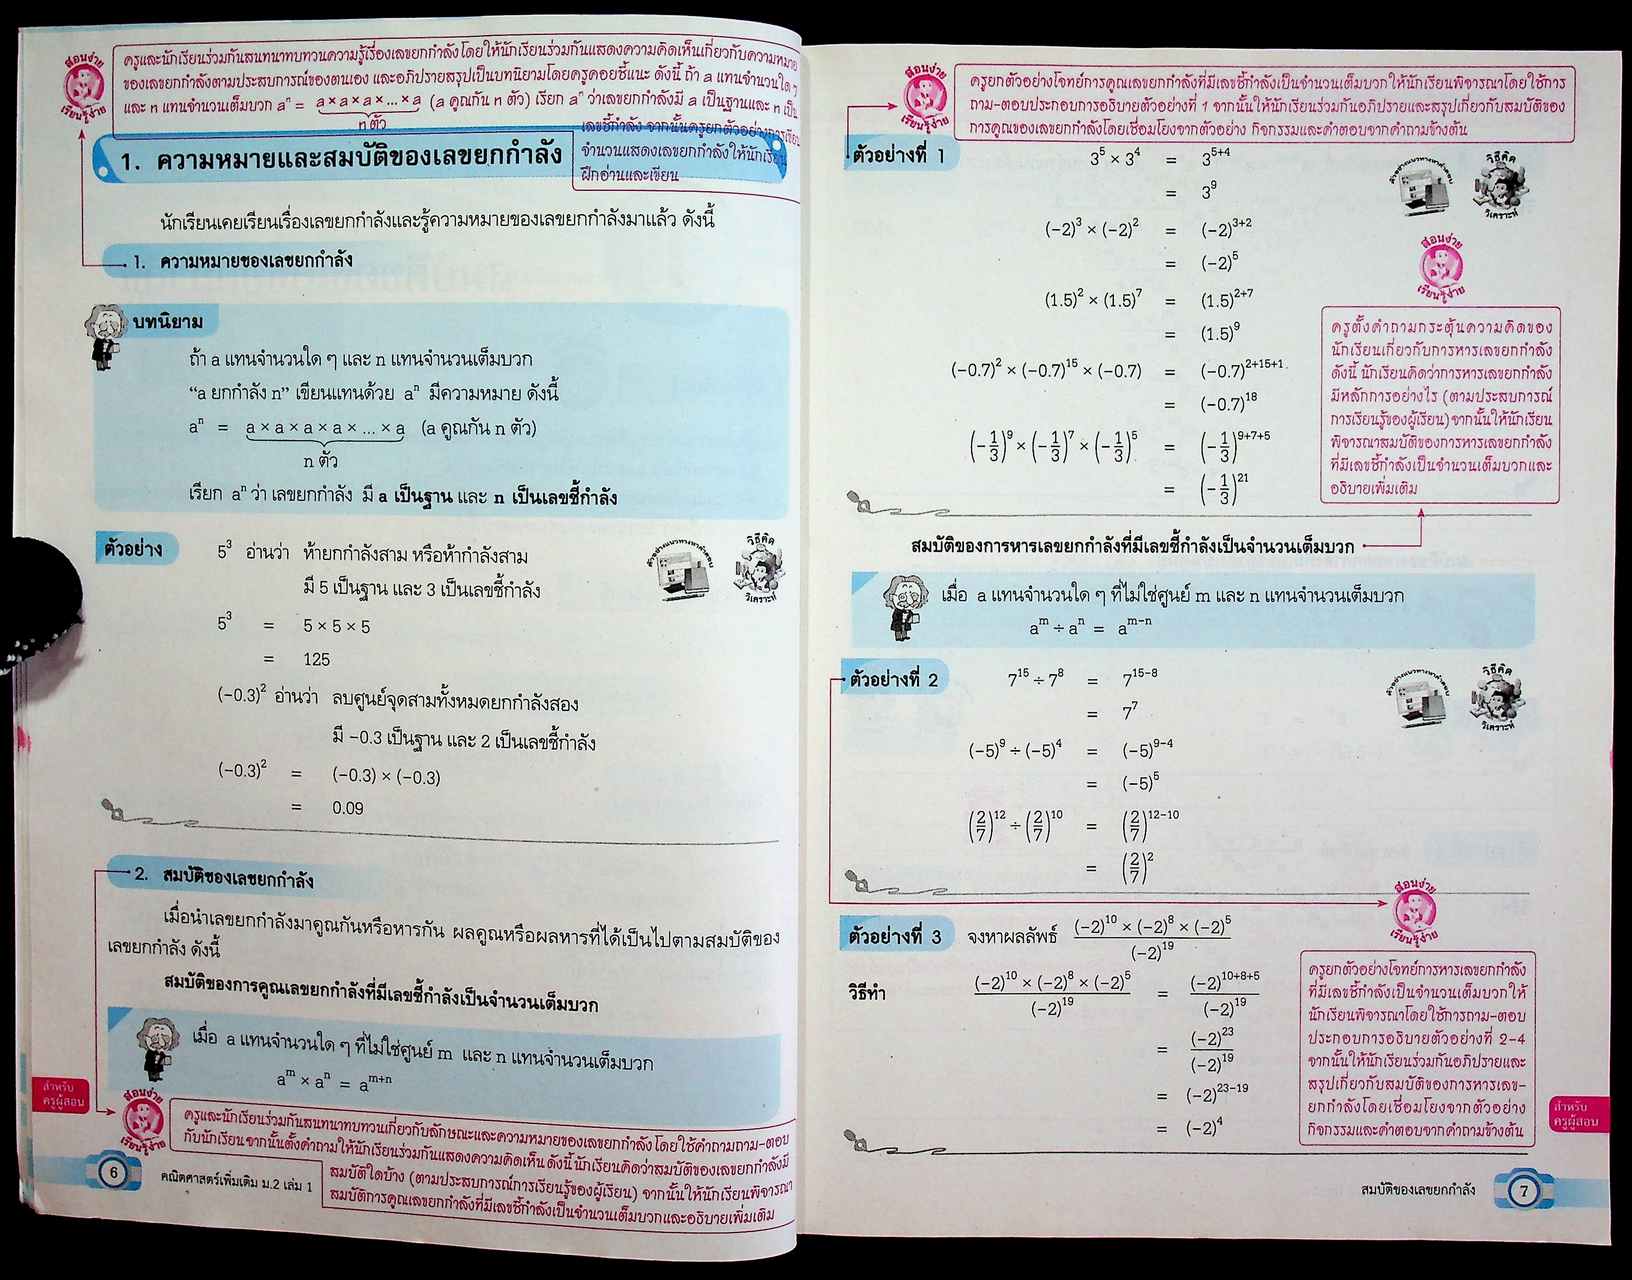 สอนง่าย
เรียนรู้ง่าย
ครูและนักเรียนร่วมกันสนทนาทบทวนความรู้เรื่องเลขยกกำลังโดยให้นักเรียนร่วมกันแสดงความคิดเห็นเกี่ยวกับความหมาย
ของเลขยกกำลังตามประสบการณ์ของตนเอง และอภิปรายสรุปเป็นบทนิยามโดยครูคอยชี้แนะ ดังนี้ ถ้า a แทนจำนวนใด ๆ
และ n แทนจำนวนเต็มบวก aⁿ = a × a × a × ... × a (a คูณกัน n ตัว) เรียก aⁿ ว่าเลขยกกำลังมี a เป็นฐานและ n เป็น
n ตัว
เลขชี้กำลัง จากนั้นครูยกตัวอย่างการเขียน
จำนวนแสดงเลขยกกำลังให้นักเรียน
ฝึกอ่านและเขียน
1. ความหมายและสมบัติของเลขยกกำลัง
นักเรียนเคยเรียนเรื่องเลขยกกำลังและรู้ความหมายของเลขยกกำลังมาแล้ว ดังนี้
1. ความหมายของเลขยกกำลัง
บทนิยาม
ถ้า a แทนจำนวนใด ๆ และ n แทนจำนวนเต็มบวก
“a ยกกำลัง n” เขียนแทนด้วย aⁿ มีความหมาย ดังนี้
aⁿ = a × a × a × a × ... × a (a คูณกัน n ตัว)
n ตัว
เรียก aⁿ ว่า เลขยกกำลัง มี a เป็นฐาน และ n เป็นเลขชี้กำลัง
ตัวอย่าง
5³ อ่านว่า ห้ายกกำลังสาม หรือห้ากำลังสาม
มี 5 เป็นฐาน และ 3 เป็นเลขชี้กำลัง
5³ = 5 × 5 × 5
= 125
(−0.3)² อ่านว่า ลบศูนย์จุดสามทั้งหมดยกกำลังสอง
มี −0.3 เป็นฐาน และ 2 เป็นเลขชี้กำลัง
(−0.3)² = (−0.3) × (−0.3)
= 0.09
ตัวอย่างแนวทางหาคำตอบ
วิธีคิด
วิเคราะห์
2. สมบัติของเลขยกกำลัง
เมื่อนำเลขยกกำลังมาคูณกันหรือหารกัน ผลคูณหรือผลหารที่ได้เป็นไปตามสมบัติของ
เลขยกกำลัง ดังนี้
สมบัติของการคูณเลขยกกำลังที่มีเลขชี้กำลังเป็นจำนวนเต็มบวก
เมื่อ a แทนจำนวนใด ๆ ที่ไม่ใช่ศูนย์ m และ n แทนจำนวนเต็มบวก
aᵐ × aⁿ = aᵐ⁺ⁿ
สำหรับ
ครูผู้สอน
สอนง่าย
เรียนรู้ง่าย
ครูและนักเรียนร่วมกันสนทนาทบทวนเกี่ยวกับลักษณะและความหมายของเลขยกกำลังโดยใช้คำถามถาม-ตอบ
กับนักเรียนจากนั้นตั้งคำถามให้นักเรียนร่วมกันแสดงความคิดเห็น ดังนี้ นักเรียนคิดว่าสมบัติของเลขยกกำลังมี
สมบัติใดบ้าง (ตามประสบการณ์การเรียนรู้ของผู้เรียน) จากนั้นให้นักเรียนพิจารณา
สมบัติการคูณเลขยกกำลังที่มีเลขชี้กำลังเป็นจำนวนเต็มบวกและอธิบายเพิ่มเติม
6 คณิตศาสตร์เพิ่มเติม ม.2 เล่ม 1
สอนง่าย
เรียนรู้ง่าย
ครูยกตัวอย่างโจทย์การคูณเลขยกกำลังที่มีเลขชี้กำลังเป็นจำนวนเต็มบวกให้นักเรียนพิจารณาโดยใช้การ
ถาม-ตอบประกอบการอธิบายตัวอย่างที่ 1 จากนั้นให้นักเรียนร่วมกันอภิปรายและสรุปเกี่ยวกับสมบัติของ
การคูณของเลขยกกำลังโดยเชื่อมโยงจากตัวอย่าง กิจกรรมและคำตอบจากคำถามข้างต้น
ตัวอย่างที่ 1
3⁵ × 3⁴ = 3⁵⁺⁴
= 3⁹
(−2)³ × (−2)² = (−2)³⁺²
= (−2)⁵
(1.5)² × (1.5)⁷ = (1.5)²⁺⁷
= (1.5)⁹
(−0.7)² × (−0.7)¹⁵ × (−0.7) = (−0.7)²⁺¹⁵⁺¹
= (−0.7)¹⁸
(−1/3)⁹ × (−1/3)⁷ × (−1/3)⁵ = (−1/3)⁹⁺⁷⁺⁵
= (−1/3)²¹
ตัวอย่างแนวทางหาคำตอบ
วิธีคิด
วิเคราะห์
สอนง่าย
เรียนรู้ง่าย
ครูตั้งคำถามกระตุ้นความคิดของ
นักเรียนเกี่ยวกับการหารเลขยกกำลัง
ดังนี้ นักเรียนคิดว่าการหารเลขยกกำลัง
มีหลักการอย่างไร (ตามประสบการณ์
การเรียนรู้ของผู้เรียน) จากนั้นให้นักเรียน
พิจารณาสมบัติของการหารเลขยกกำลัง
ที่มีเลขชี้กำลังเป็นจำนวนเต็มบวกและ
อธิบายเพิ่มเติม
สมบัติของการหารเลขยกกำลังที่มีเลขชี้กำลังเป็นจำนวนเต็มบวก
เมื่อ a แทนจำนวนใด ๆ ที่ไม่ใช่ศูนย์ m และ n แทนจำนวนเต็มบวก
aᵐ ÷ aⁿ = aᵐ⁻ⁿ
ตัวอย่างที่ 2
7¹⁵ ÷ 7⁸ = 7¹⁵⁻⁸
= 7⁷
(−5)⁹ ÷ (−5)⁴ = (−5)⁹⁻⁴
= (−5)⁵
(2/7)¹² ÷ (2/7)¹⁰ = (2/7)¹²⁻¹⁰
= (2/7)²
ตัวอย่างแนวทางหาคำตอบ
วิธีคิด
วิเคราะห์
สอนง่าย
เรียนรู้ง่าย
ตัวอย่างที่ 3 จงหาผลลัพธ์ (−2)¹⁰ × (−2)⁸ × (−2)⁵ / (−2)¹⁹
วิธีทำ (−2)¹⁰ × (−2)⁸ × (−2)⁵ / (−2)¹⁹ = (−2)¹⁰⁺⁸⁺⁵ / (−2)¹⁹
= (−2)²³ / (−2)¹⁹
= (−2)²³⁻¹⁹
= (−2)⁴
ครูยกตัวอย่างโจทย์การหารเลขยกกำลัง
ที่มีเลขชี้กำลังเป็นจำนวนเต็มบวกให้
นักเรียนพิจารณาโดยใช้การถาม-ตอบ
ประกอบการอธิบายตัวอย่างที่ 2-4
จากนั้นให้นักเรียนร่วมกันอภิปรายและ
สรุปเกี่ยวกับสมบัติของการหารเลข-
ยกกำลังโดยเชื่อมโยงจากตัวอย่าง
กิจกรรมและคำตอบจากคำถามข้างต้น
สำหรับ
ครูผู้สอน
สมบัติของเลขยกกำลัง 7